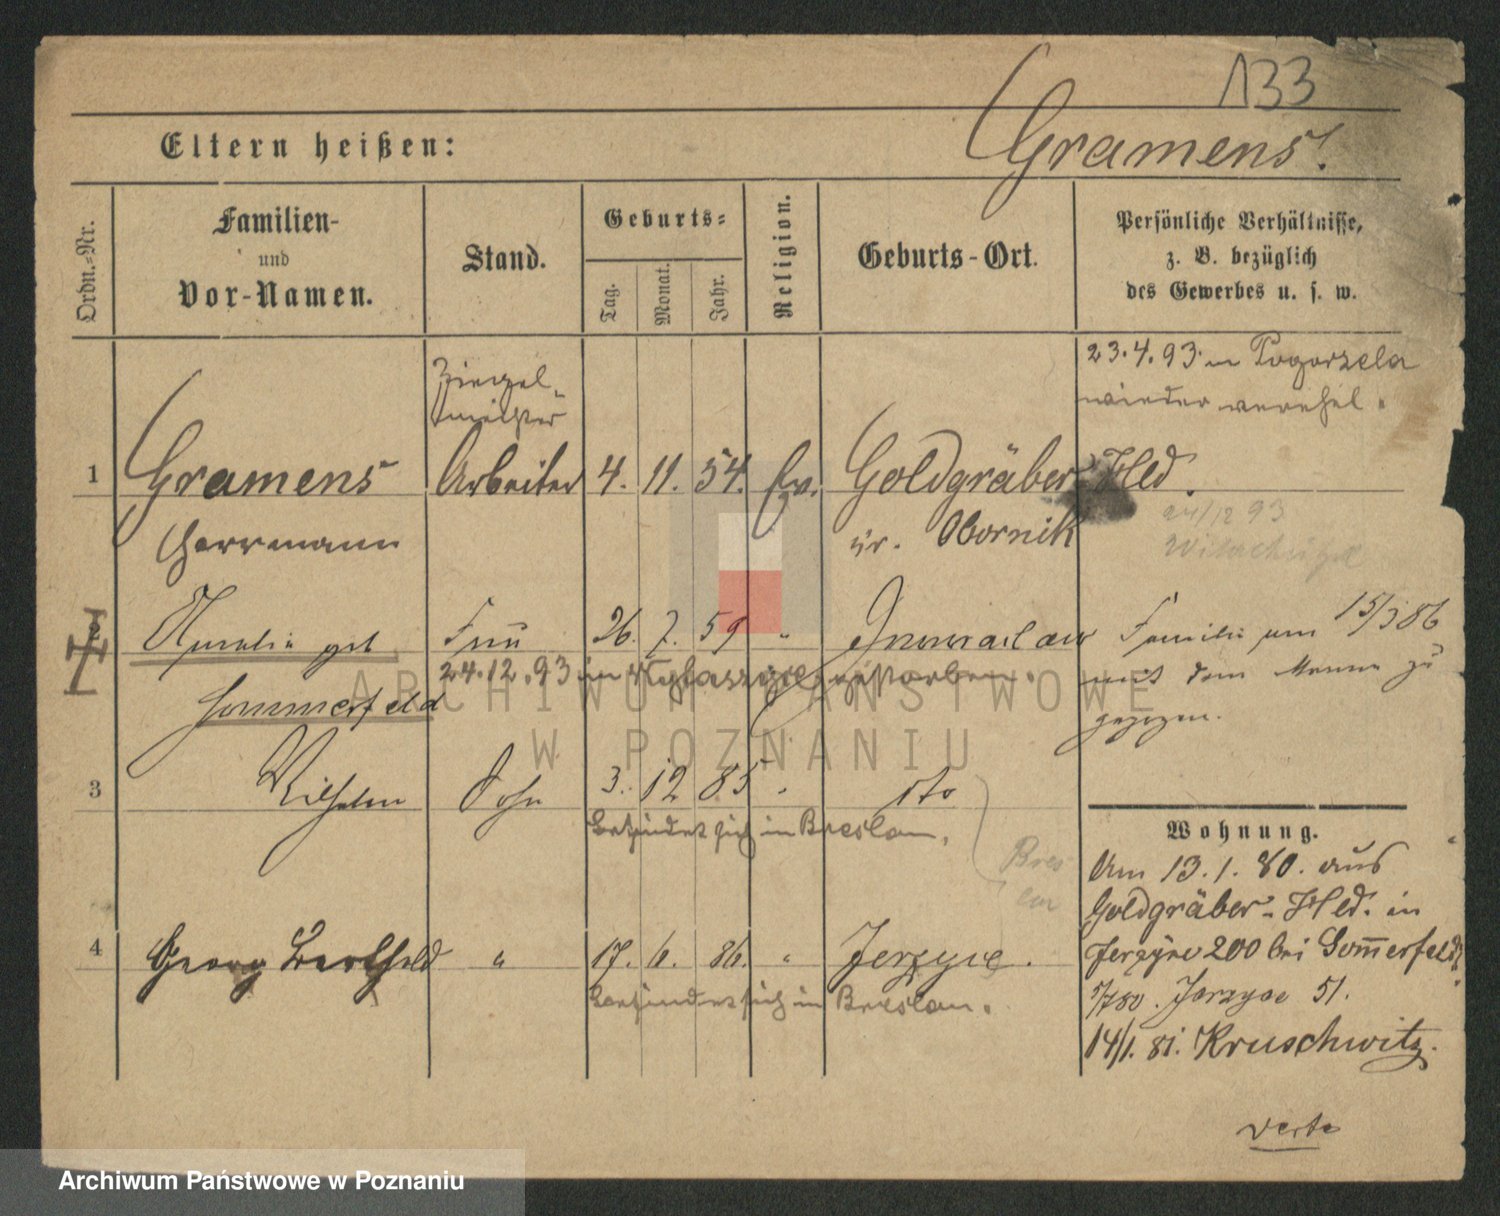 133
Eltern heißen:
Gramens.
Ordn.-Nr.
Familien-
und
Vor-Namen.
Stand.
Geburts-
Tag.
Monat.
Jahr.
Religion.
Geburts-Ort.
Persönliche Verhältnisse,
z. B. bezüglich
des Gewerbes u. s. w.
23.4.93 in Pogorzela
wieder verehel.
Ziegel-
meister
1 Gramens Arbeiter 4. 11. 54. Ev. Goldgräber Hld.
Herrmann Kr. Obornik
24/12 93
Amalie geb. Frau 26. 7. 59 " Inowraclaw Familie am 15/3 86
24.12.93 in gestorben. mit dem Manne zu
Sommerfeld gezogen.
3 Wilhelm Sohn 3. 12 85 " dto
befindet sich in Breslau.
Bres
lau
Wohnung.
Am 13.1.80. aus
Goldgräber-Hld. in
4 Georg Berthold " 17. 6. 86. " Jerzyce. Jerzyce 200 bei Sommerfeld
befindet sich in Breslau. 7/80. Jerzyce 51.
14/1. 81. Kruschwitz.
verte
ARCHIWUM PAŃSTWOWE
W POZNANIU
Archiwum Państwowe w Poznaniu